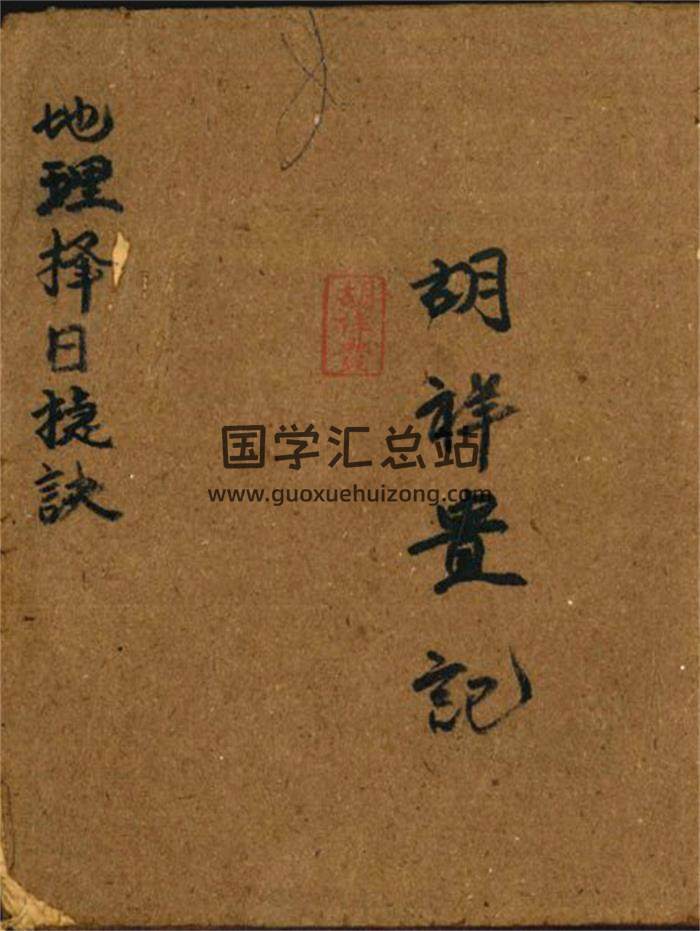 胡祥畳記
胡祥
地理择日捷訣
国学汇总站
www.guoxuehuizong.com